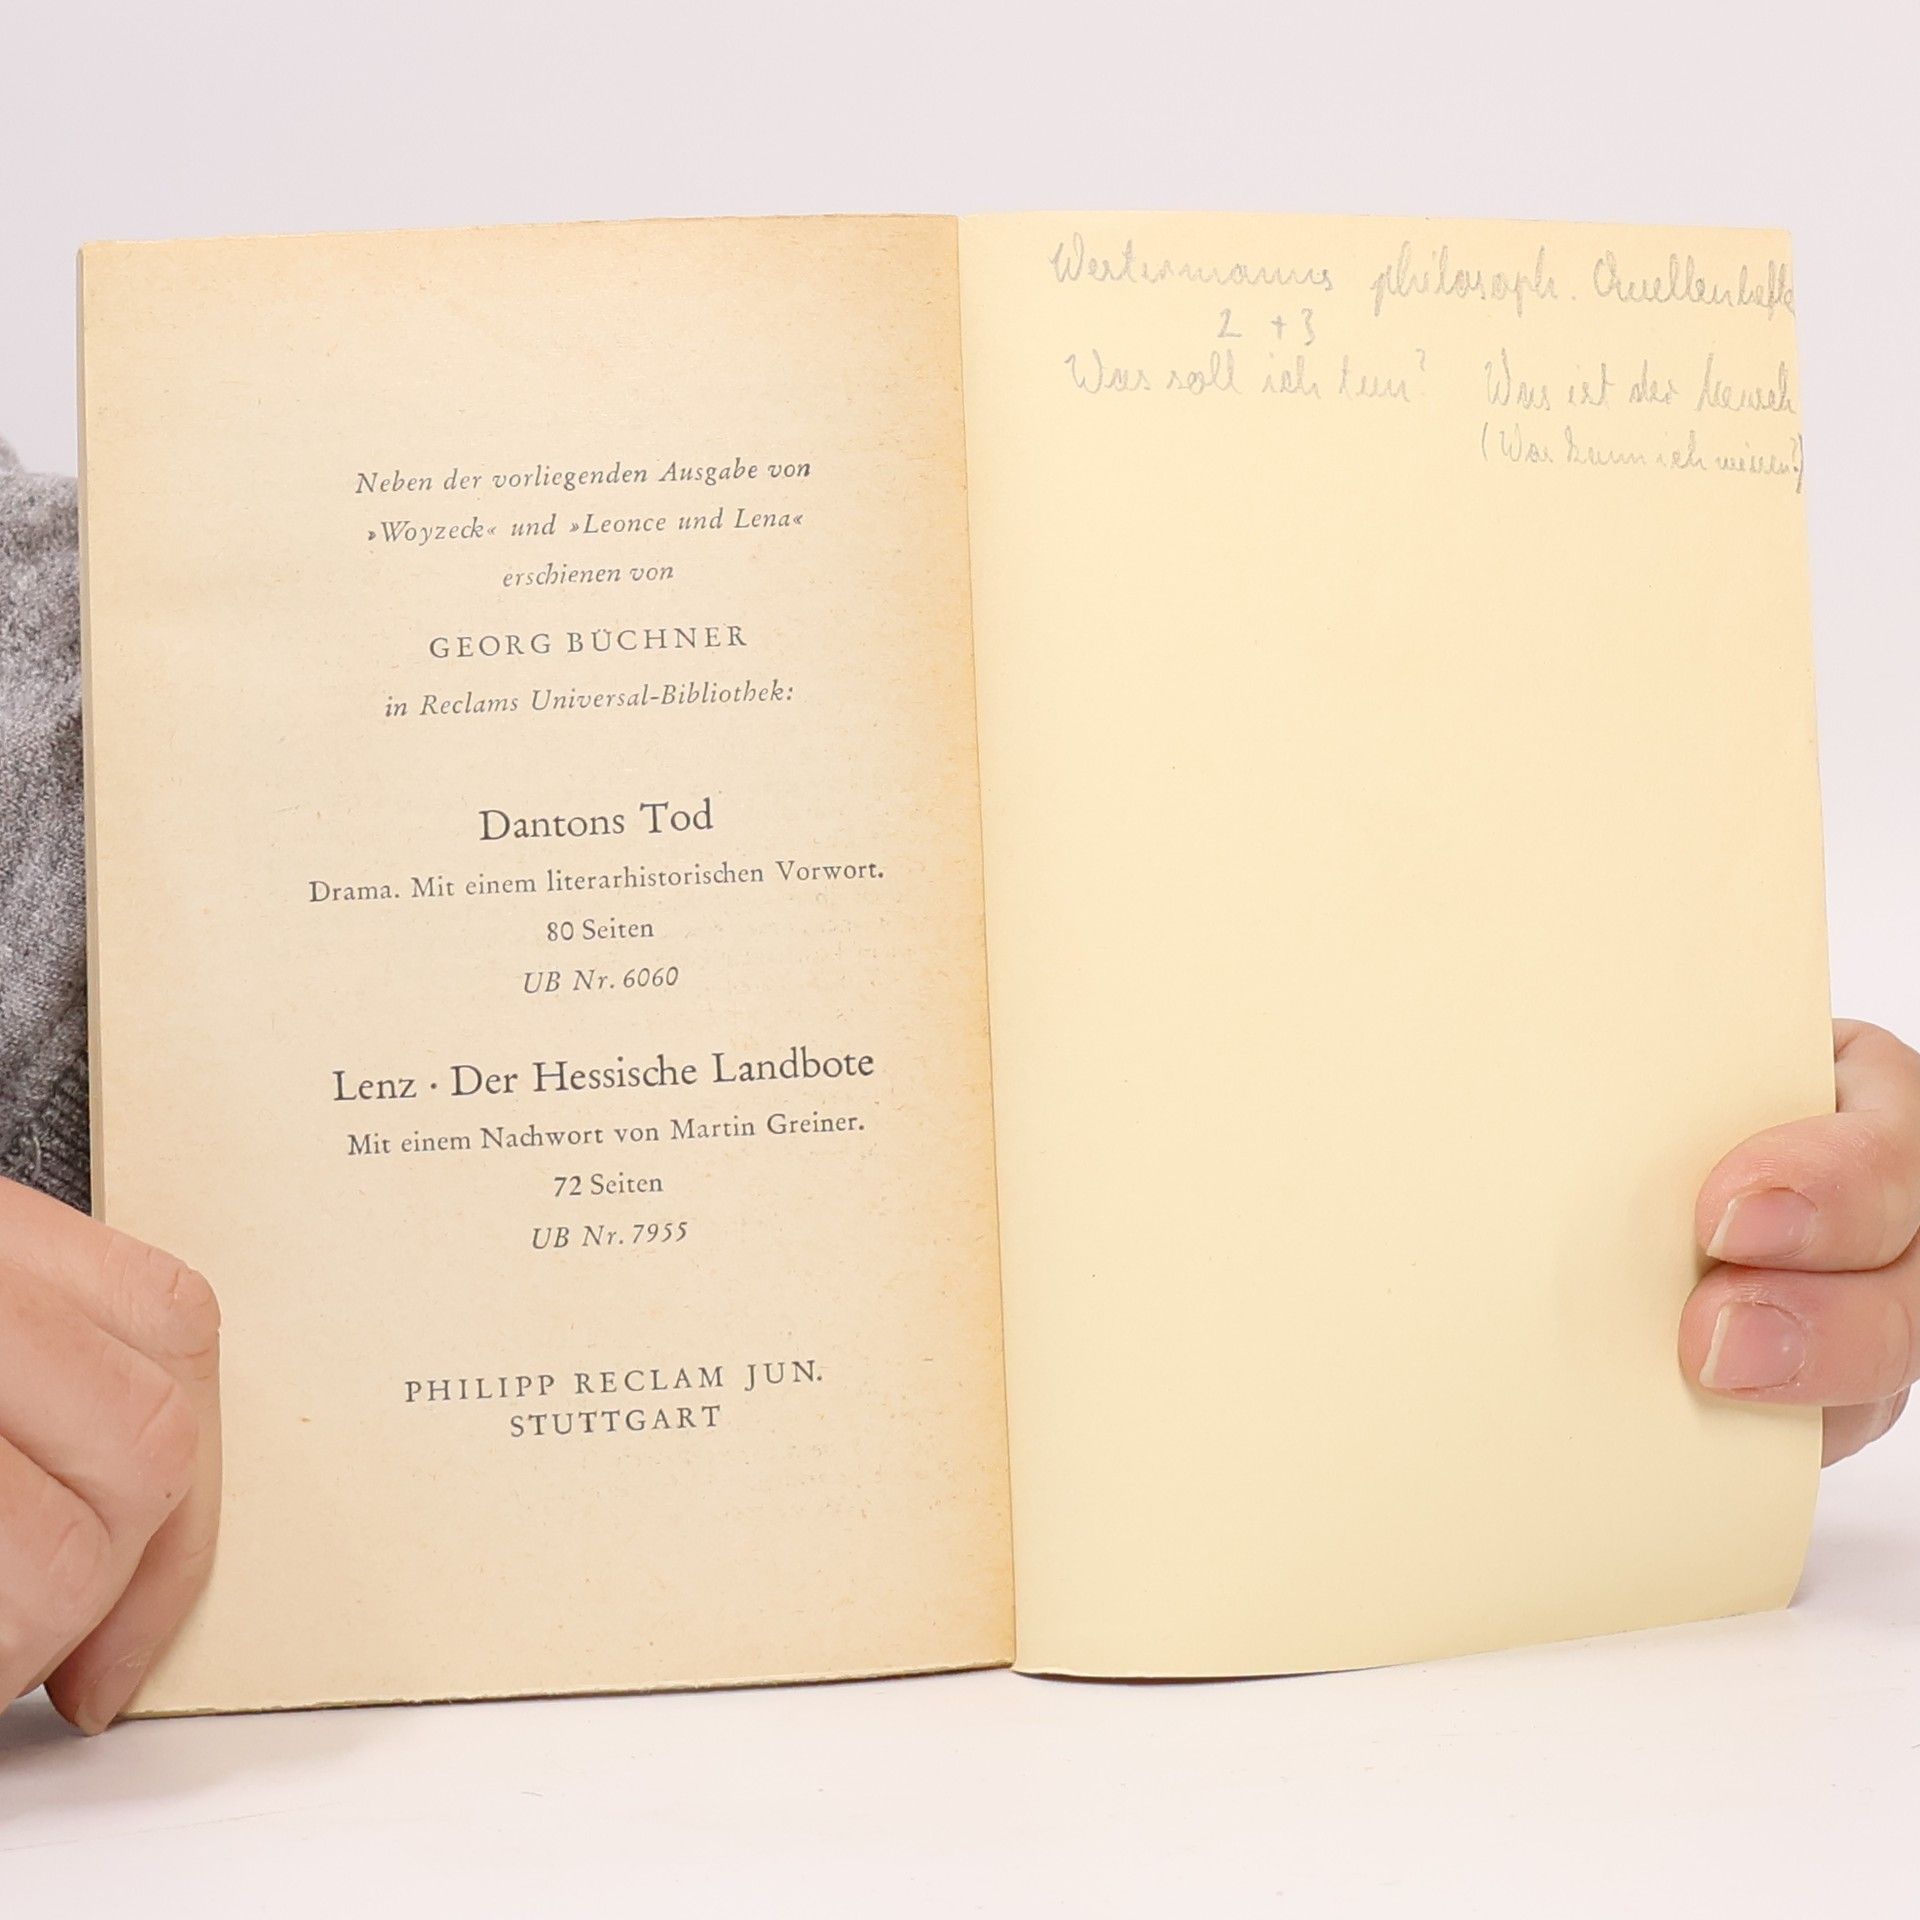 Neben der vorliegenden Ausgabe von
»Woyzeck« und »Leonce und Lena«
erschienen von
GEORG BÜCHNER
in Reclams Universal-Bibliothek:
Dantons Tod
Drama. Mit einem literarhistorischen Vorwort.
80 Seiten
UB Nr. 6060
Lenz · Der Hessische Landbote
Mit einem Nachwort von Martin Greiner.
72 Seiten
UB Nr. 7955
PHILIPP RECLAM JUN.
STUTTGART
Westermanns philosoph. Quellenhefte
2 + 3
Was soll ich tun? Was ist der Mensch
(Was kann ich wissen?)